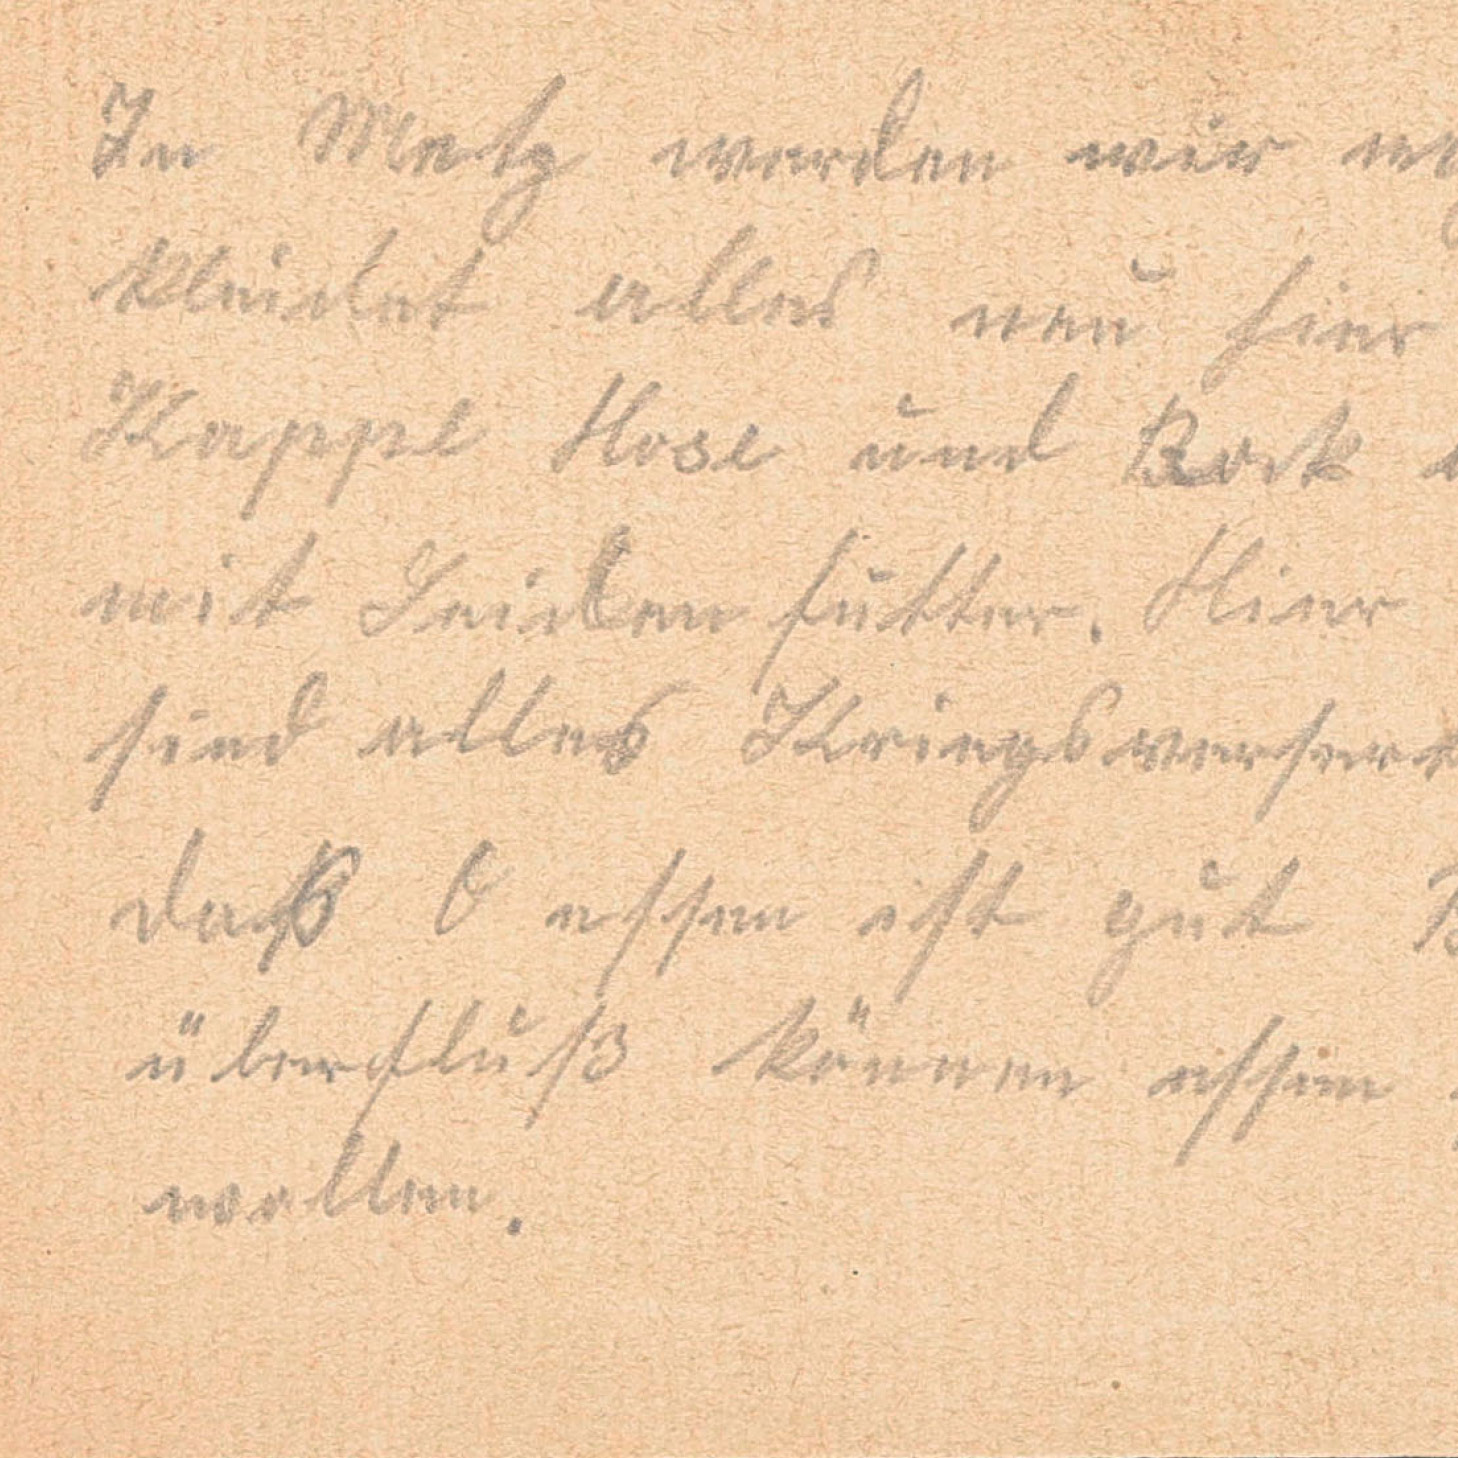 In Metz werden wir
kleidet alles neu hier
Kappe Hose und Rock
mit Seiden futter. Hier
sind alles
daß essen ist gut
überfluß können essen
wollen.